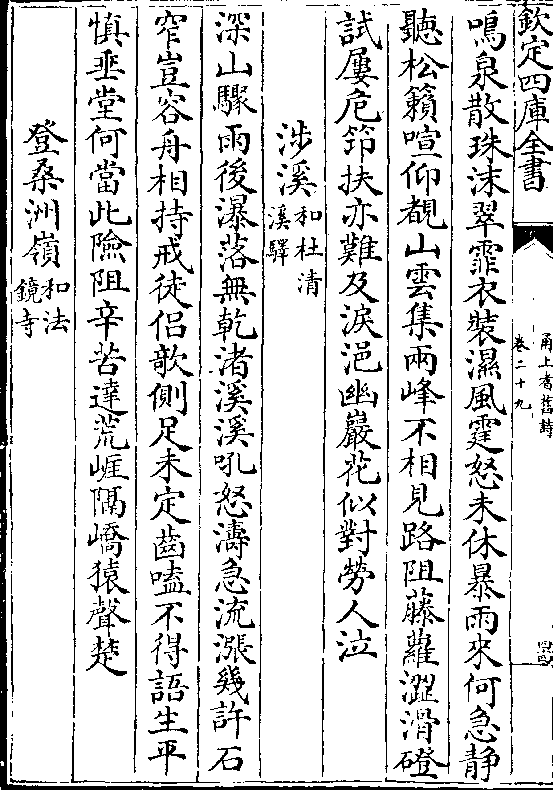 欽定四庫全書
甬上耆舊詩
卷二十九
鳴泉散珠沫翠霏衣裝濕風霆怒未休暴雨來何急靜
聽松籟喧仰覩山雲集兩峰不相見路阻藤蘿澀滑磴
試屢危笻扶亦難及淚浥幽巖花似對勞人泣
涉溪和杜清溪驛
深山驟雨後瀑落無乾渚溪溪吼怒濤急流漲幾許石
窄豈容舟相持戒徒侶欹側足未定齒嗑不得語生平
慎垂堂何當此險阻辛苦達荒崕隔嶠猿聲楚
登桑洲嶺和法鏡寺